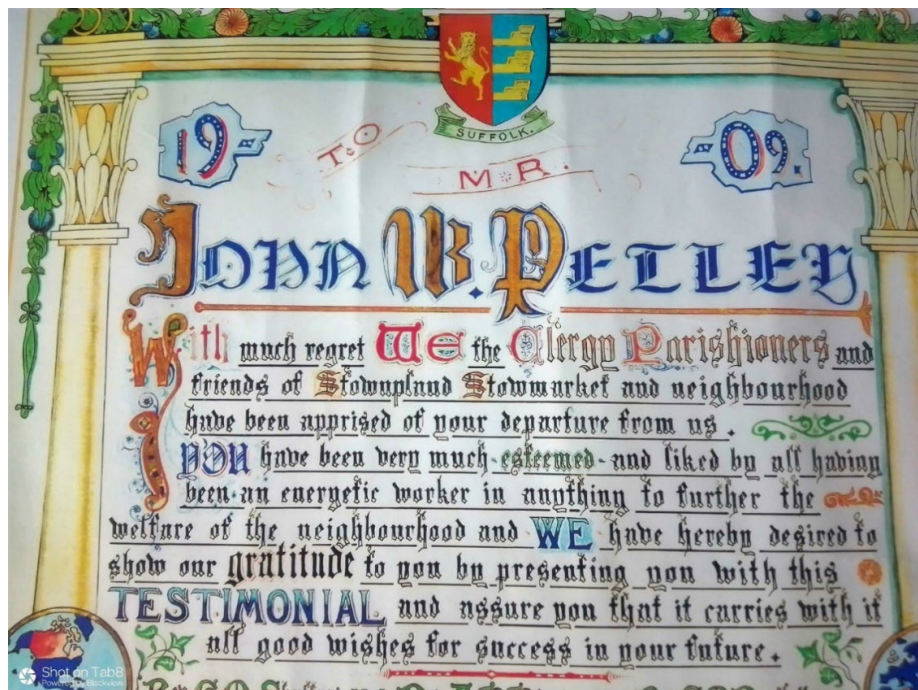 SUFFOLK.
1909.
TO
MR.
JOHN W. PETLEY
With much regret WE the Clergy Parishioners and
friends of Stowupland Stowmarket and neighbourhood
have been apprised of your departure from us.
YOU have been very much esteemed and liked by all having
been an energetic worker in anything to further the
welfare of the neighbourhood and WE have hereby desired to
show our gratitude to you by presenting you with this
TESTIMONIAL and assure you that it carries with it
all good wishes for success in your future.
Shot on Tab8
Powered by Blackview